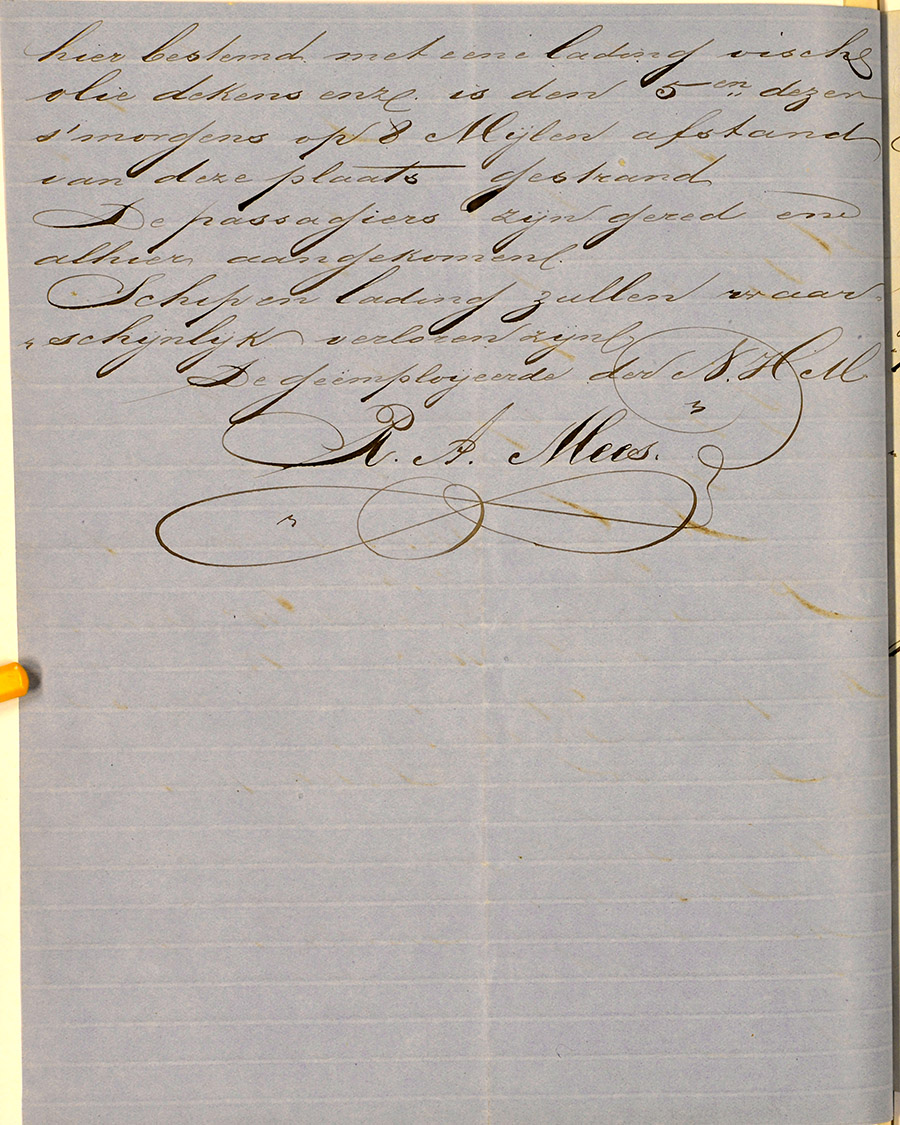 hier bestemd met eene lading visch
olie dekens enz. is den 5en dezer
s'morgens op 8 Mijlen afstand
van deze plaats gestrand
De passagiers zijn gered en
alhier aangekomen.
Schip en lading zullen waar-
"schijnlijk verloren zijn
De geëmployeerde der N.H.M
R. A. Mees.